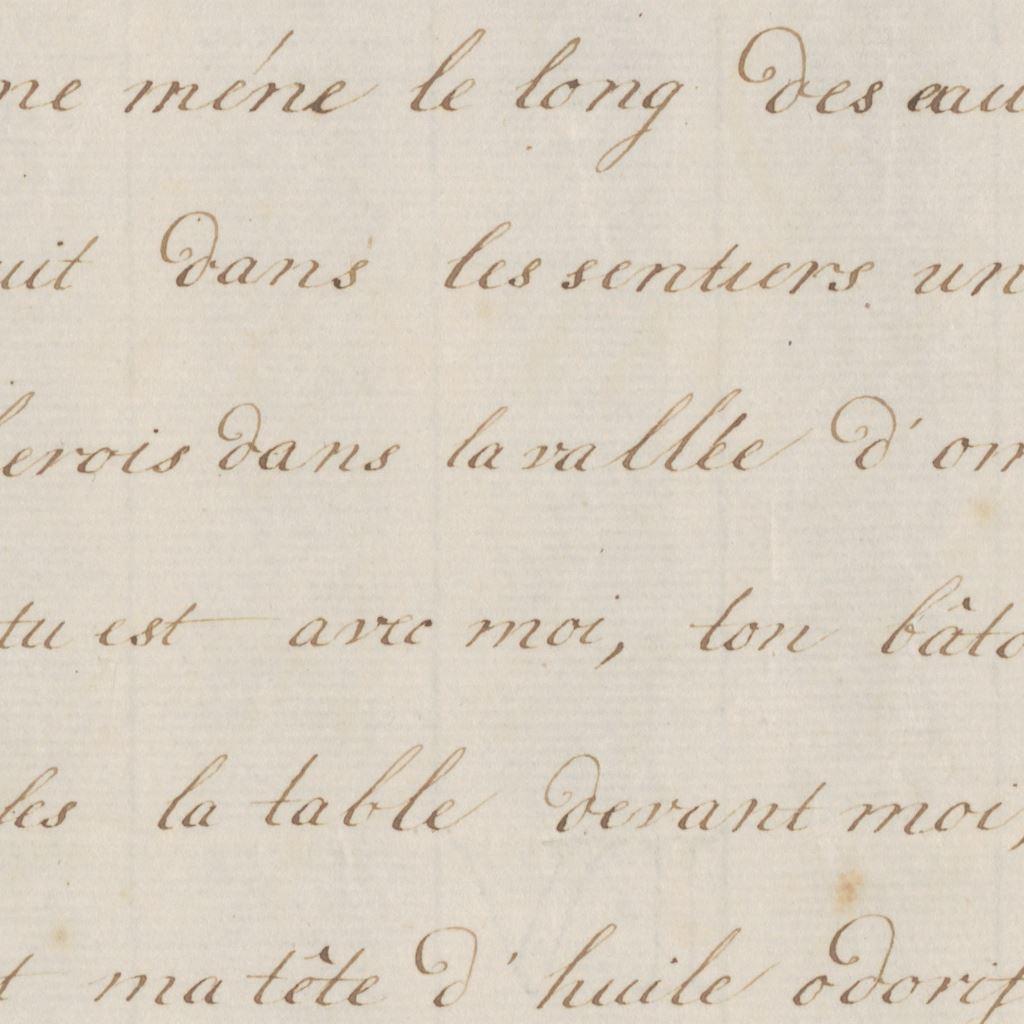 me méne le long des eau
uit dans les sentiers un
erois dans la vallée d'om
tu est avec moi, ton bâto
les la table devant moi,
t ma tête d'huile odorif